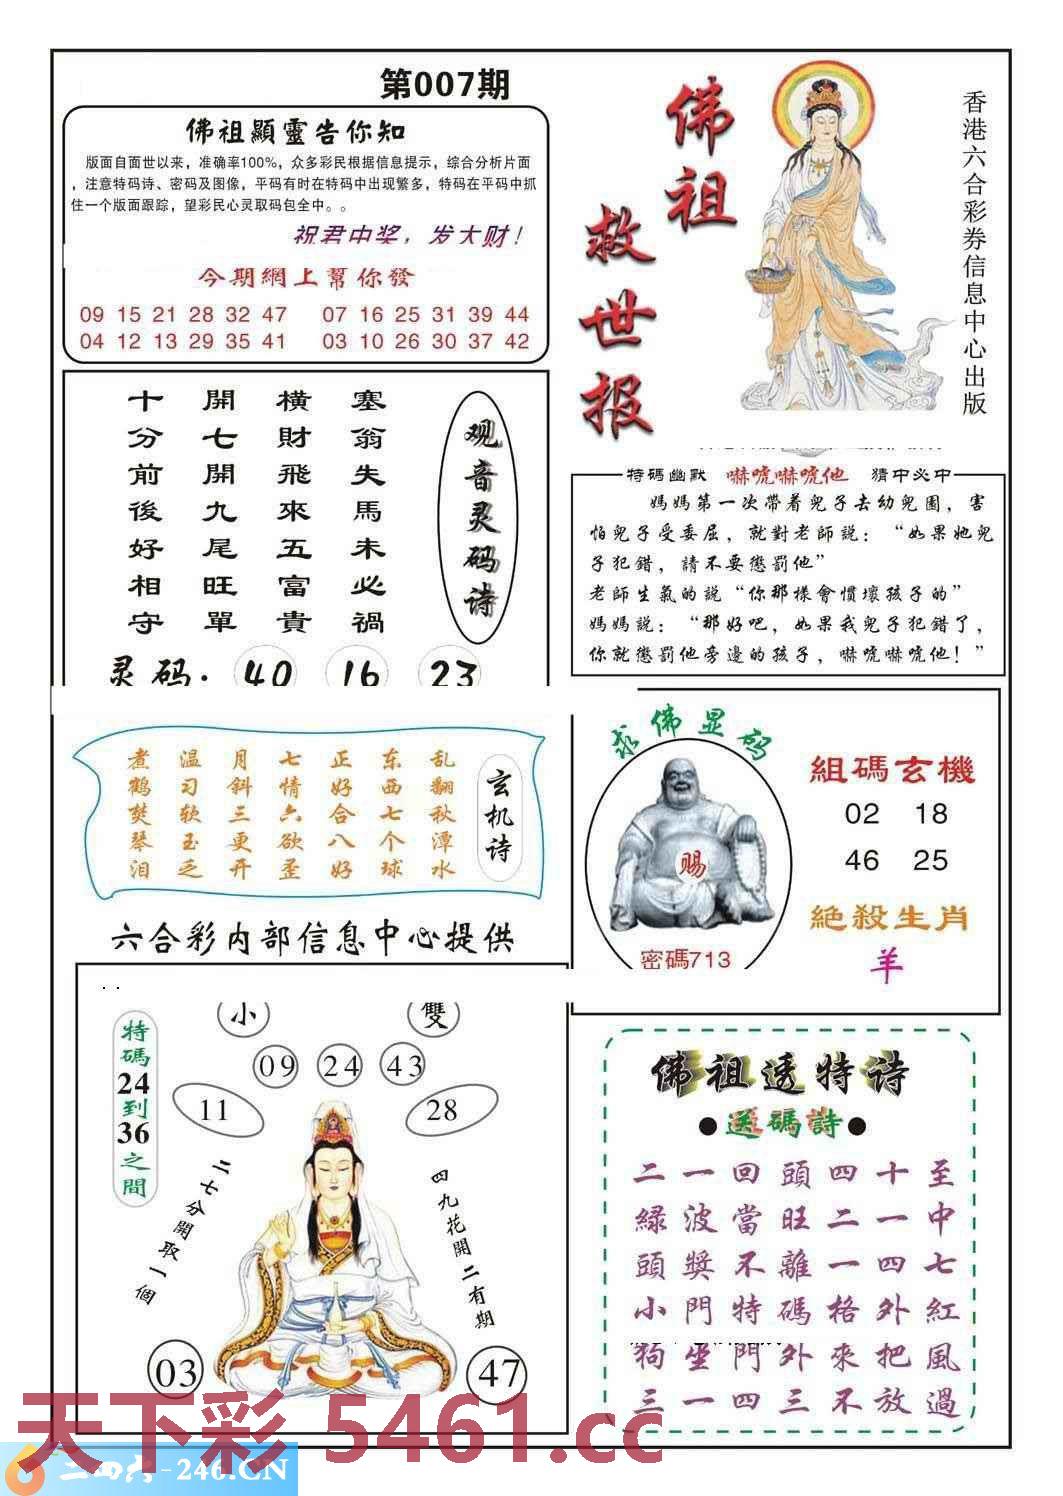 第007期
佛祖顯靈告你知
版面自面世以来，准确率100%，众多彩民根据信息提示，综合分析片面
，注意特码诗、密码及图像，平码有时在特码中出现繁多，特码在平码中抓
住一个版面跟踪，望彩民心灵取码包全中。。
祝君中奖，发大财！
今期網上幫你發
09 15 21 28 32 47 07 16 25 31 39 44
04 12 13 29 35 41 03 10 26 30 37 42
佛祖
救世报
香港六合彩券信息中心出版
观音灵码诗
塞翁失馬未必禍
橫財飛來五富貴
開七開九尾旺單
十分前後好相守
灵码. 40 16 23
特碼幽默 嚇唬嚇唬他 猜中必中
媽媽第一次帶着兒子去幼兒園，害
怕兒子受委屈，就對老師説：“如果她兒
子犯錯，請不要懲罰他”
老師生氣的説“你那樣會慣壞孩子的”
媽媽説：“那好吧，如果我兒子犯錯了，
你就懲罰他旁邊的孩子，嚇唬嚇唬他！”
玄机诗
乱翻秋潭水
东西七个球
正好合八好
七情六欲歪
月斜三更开
温习软玉乏
煮鹤焚琴泪
求佛显码
赐
密碼713
組碼玄機
02 18
46 25
絕殺生肖
羊
六合彩内部信息中心提供
特碼24到36之間
小 雙
09 24 43
11 28
二七分開取一個
四九花開二有期
03 47
佛祖透特诗
●送碼詩●
二一回頭四十至
緑波當旺二一中
頭獎不離一四七
小門特碼格外紅
狗坐門外來把風
三一四三不放過
天下彩 5461.cc
二四六-246.CN